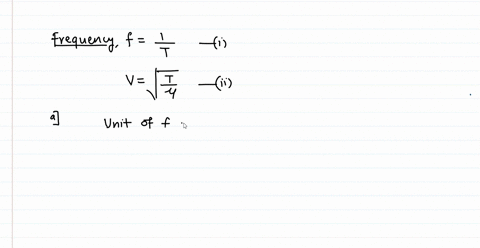 Frequency, f = 1/T —(i)
V = √(T/μ) —(ii)
a] Unit of f